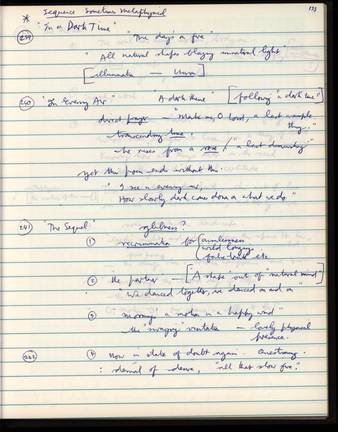 133
* Sequence Sometimes Metaphysical
"In a Dark Time"
239 "The day's a fire"
"All natural shapes blazing unnatural light"
[illuminate —
240 "In Evening Air" "A dark theme" [following "a dark time"]
direct prayer - "Make me, O Lord, a last simple thing"
transcending time.
- he rises from a rose / "a last
yet this poem ends without this.
"I see, in evening air,
How slowly dark comes down on what we do"
241 "The Sequel" ?
① recrimination for {aimlessness
{wild longing
{false etc
② the partner - [A shape out of "natural mind"]
"We danced together, we danced on and on"
③ morning's a motion in a happy mind"
the swaying - lovely physical
presence.
242 ④ Now in state of doubt again. Questioning.
: denial of desire, "all that slow fire."